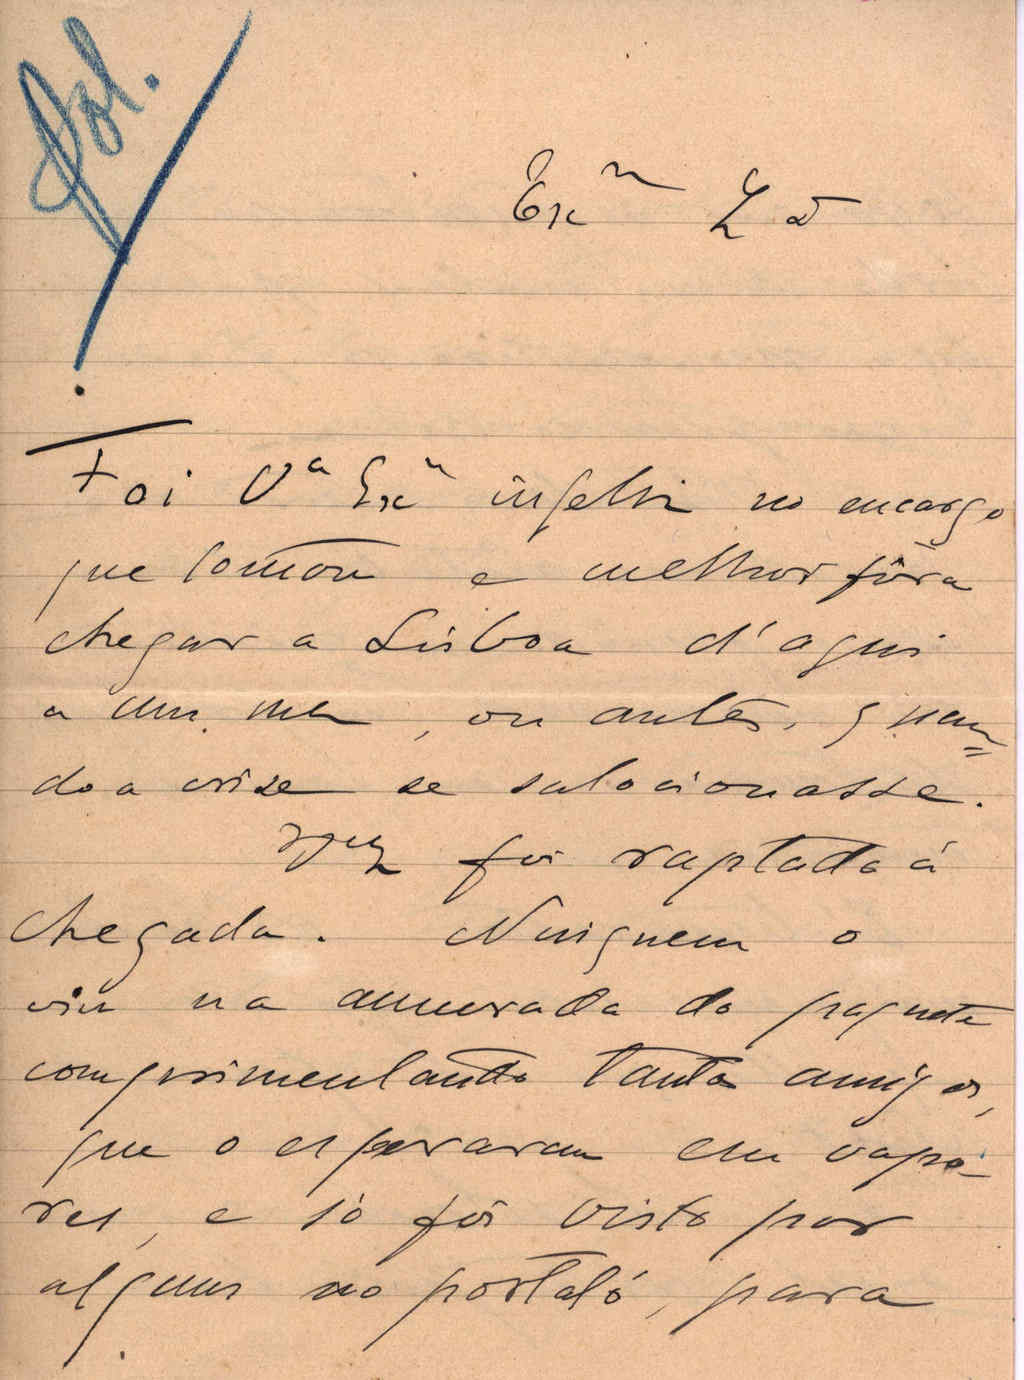 Pol.
Exmo
Foi Va Exa infeliz no encargo
que tomou e melhor fôra
chegar a Lisboa d'aqui
a um mez, ou antes, quan=
do a crise se solocionasse.
foi raptado á
chegada. Ninguem o
viu na amurada do paquete
comprimentando tantos amigos,
que o esperavam em vapo-
res, e só foi visto por
alguns no portaló, para